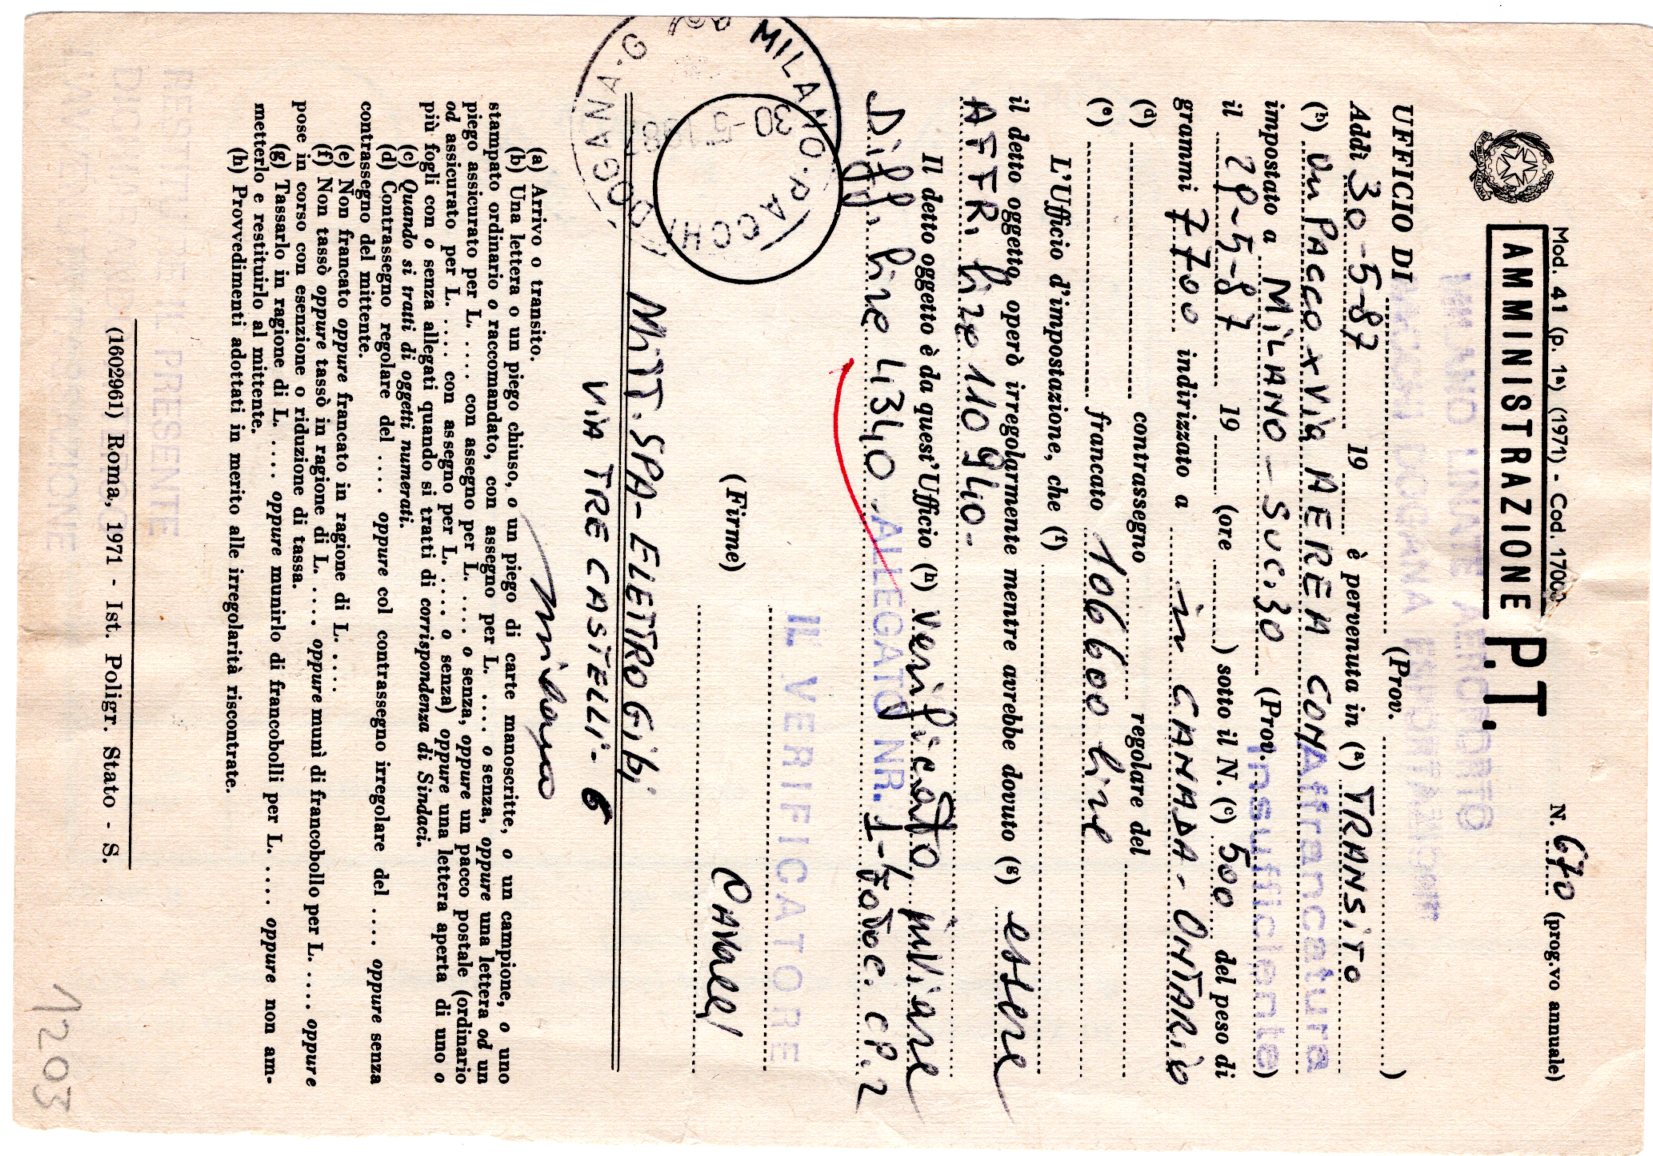 Mod. 41 (p. 1ª) (1971) - Cod. 1700
N. 670 (prog.vo annuale)
AMMINISTRAZIONE P.T.
MILANO LINATE AEROPORTO
UFFICIO DI (Prov. )
Addì 30-5-87 19 è pervenuta in (ª) TRANSITO
(ᵇ) UN PACCO x Via AEREA CON Affrancatura
impostato a MILANO - SUC. 30 (Prov. Insufficiente )
il 29-5-87 19 (ore ) sotto il N. (ᶜ) 500 del peso di
grammi 7700 indirizzato a in CANADA - ONTARIO
(ᵈ) contrassegno regolare del
(ᵉ) francato 106600 lire
L'Ufficio d'impostazione, che (ᶠ)
il detto oggetto, operò irregolarmente mentre avrebbe dovuto (ᵍ) essere
AFFR. lire 110940-
Il detto oggetto è da quest'Ufficio (ʰ) Verificato, inviare
Diff. lire 4340. ALLEGATO NR. 1-fotoc. CP. 2
IL VERIFICATORE
(Firme)
MITT. SPA- ELETTRO Gibi
VIA TRE CASTELLI- 6
Milano
MILANO-PACCHI DOGANA-G
30-5-1987
(a) Arrivo o transito.
(b) Una lettera o un piego chiuso, o un piego di carte manoscritte, o un campione, o uno
stampato ordinario o raccomandato, con assegno per L. .... o senza, oppure una lettera od un
piego assicurato per L. .... con assegno per L. .... o senza, oppure un pacco postale (ordinario
od assicurato per L. .... con assegno per L. .... o senza) oppure una lettera aperta di uno o
più fogli con o senza allegati quando si tratti di corrispondenza di Sindaci.
(c) Quando si tratti di oggetti numerati.
(d) Contrassegno regolare del .... oppure col contrassegno irregolare del .... oppure senza
contrassegno del mittente.
(e) Non francato oppure francato in ragione di L. ....
(f) Non tassò oppure tassò in ragione di L. .... oppure munì di francobollo per L. .... oppure
pose in corso con esenzione o riduzione di tassa.
(g) Tassarlo in ragione di L. .... oppure munirlo di francobolli per L. .... oppure non am-
metterlo e restituirlo al mittente.
(h) Provvedimenti adottati in merito alle irregolarità riscontrate.
(1602961) Roma, 1971 - Ist. Poligr. Stato - S.
1203